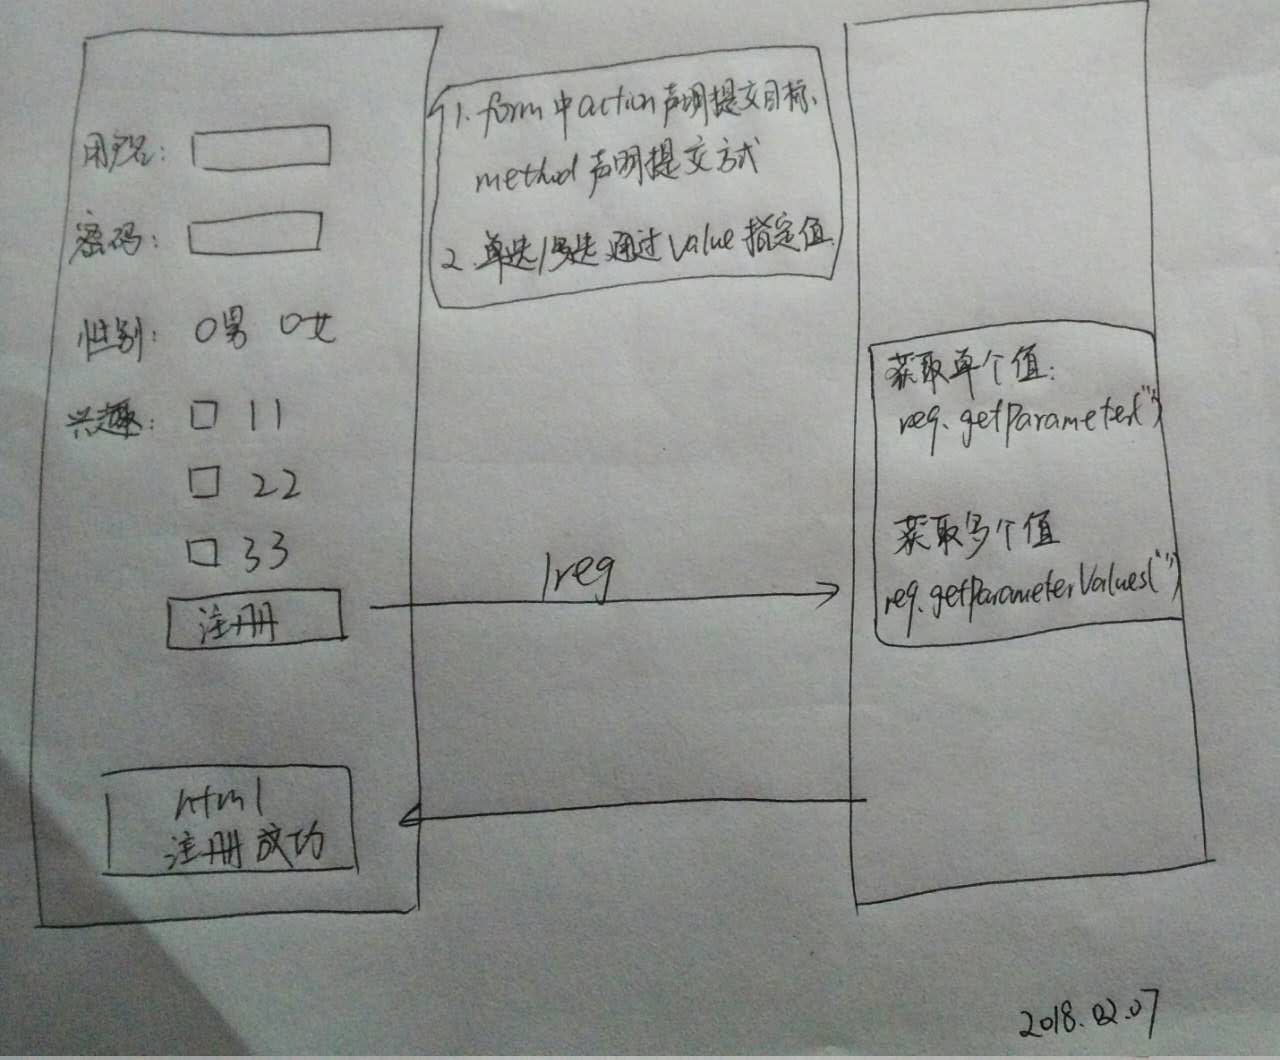 用户名:
密码:
性别: 男 女
兴趣: 11
22
33
注册
html
注册成功
1. form中action声明提交目标、
method声明提交方式
2. 单选/多选通过value指定值
/reg
获取单个值:
req.getParameter("")
获取多个值
req.getParameterValues("")
2018.02.07